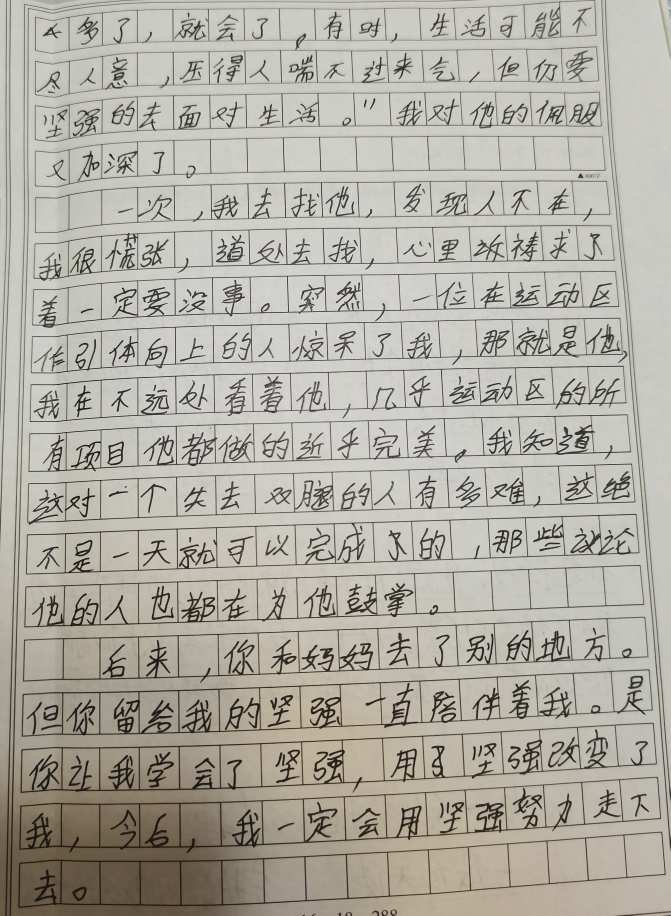 多了，就会了。有时，生活可能不
尽人意，压得人喘不过来气，但仍要
坚强的去面对生活。"我对他的佩服
又加深了。
一次，我去找他，发现人不在，
我很慌张，道处去找，心里放祷求了
着一定要没事。突然，一位在运动区
作引体向上的人惊呆了我，那就是他，
我在不远处看着他，几乎运动区的所
有项目他都做的近乎完美。我知道，
这对一个失去双腿的人有多难，这绝
不是一天就可以完成了的，那些议论
他的人也都在为他鼓掌。
后来，你和妈妈去了别的地方。
但你留给我的坚强一直陪伴着我。是
你让我学会了坚强，用坚强改变了
我，今后，我一定会用坚强努力走下
去。